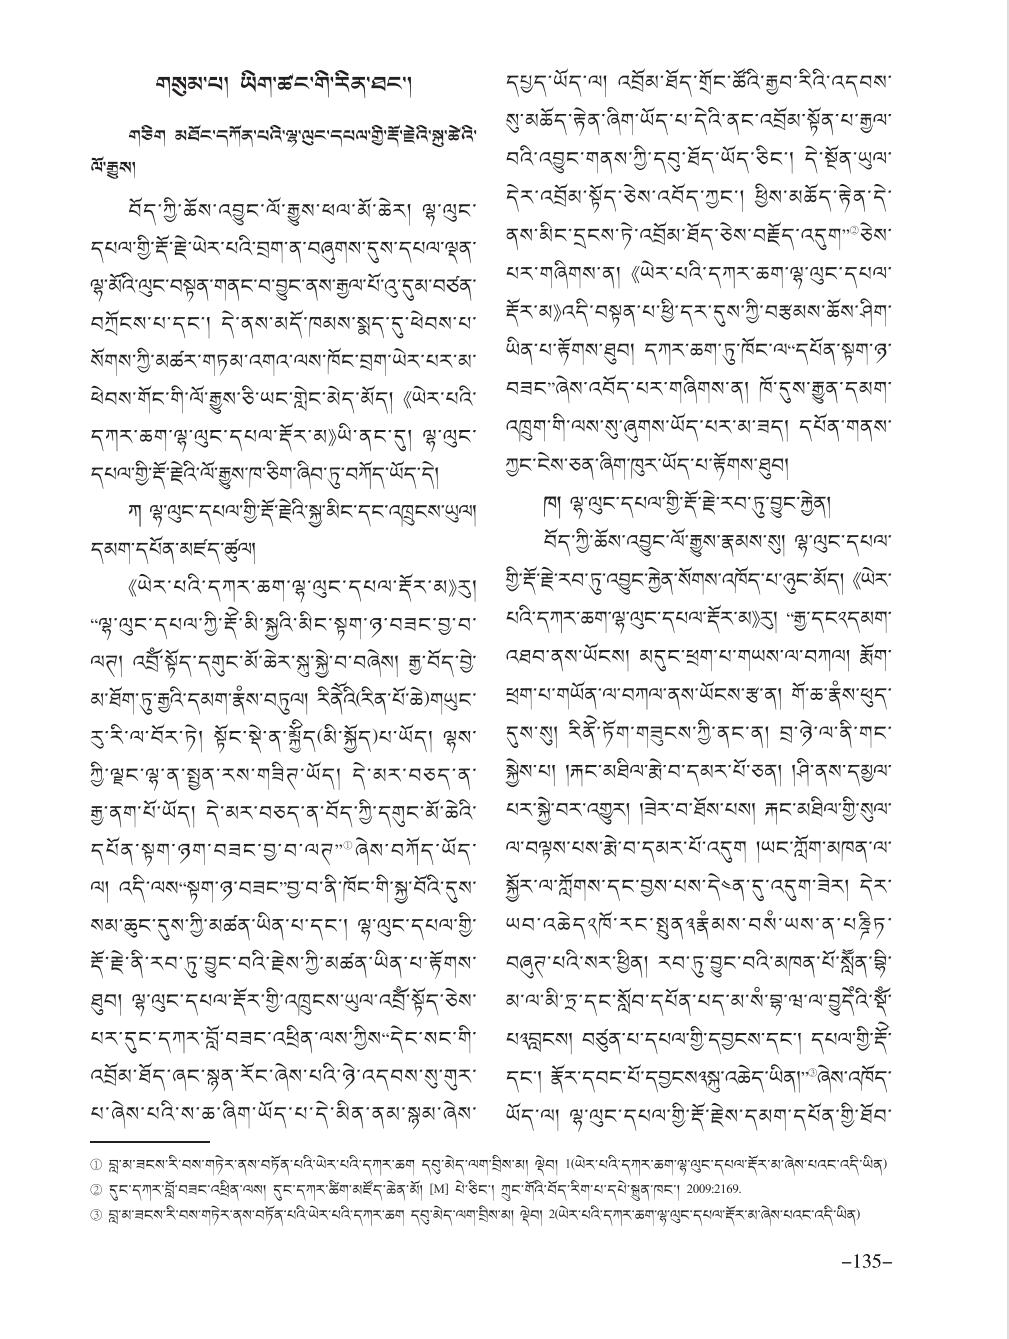 གསུམ་པ། ཡིག་ཚང་གི་རིན་ཐང་།
གཅིག མཐོང་དཀོན་པའི་ལྷ་ལུང་དཔལ་གྱི་རྡོ་རྗེའི་སྐུ་ཚེའི་
ལོ་རྒྱུས།
བོད་ཀྱི་ཆོས་འབྱུང་ལོ་རྒྱུས་ཕལ་མོ་ཆེར། ལྷ་ལུང་
དཔལ་གྱི་རྡོ་རྗེ་ཡེར་པའི་བྲག་ན་བཞུགས་དུས་དཔལ་ལྡན་
ལྷ་མོའི་ལུང་བསྟན་གནང་བ་བྱུང་ནས་རྒྱལ་པོ་འུ་དུམ་བཙན་
བཀྲོངས་པ་དང་། དེ་ནས་མདོ་ཁམས་སྨད་དུ་ཕེབས་པ་
སོགས་ཀྱི་མཚར་གཏམ་འགའ་ལས་ཁོང་བྲག་ཡེར་པར་མ་
ཕེབས་གོང་གི་ལོ་རྒྱུས་ཅི་ཡང་གླེང་མེད་མོད། 《ཡེར་པའི་
དཀར་ཆག་ལྷ་ལུང་དཔལ་རྡོར་མ》ཡི་ནང་དུ། ལྷ་ལུང་
དཔལ་གྱི་རྡོ་རྗེའི་ལོ་རྒྱུས་ཁ་ཅིག་ཞིབ་ཏུ་བཀོད་ཡོད་དེ།
ཀ། ལྷ་ལུང་དཔལ་གྱི་རྡོ་རྗེའི་སྐྱ་མིང་དང་འཁྲུངས་ཡུལ།
དམག་དཔོན་མཛད་ཚུལ།
《ཡེར་པའི་དཀར་ཆག་ལྷ་ལུང་དཔལ་རྡོར་མ》རུ།
“ལྷ་ལུང་དཔལ་ཀྱི་རྡོེ་མི་སྐྱའི་མིང་སྟག་ཉ་བཟང་བྱ་བ་
ལཊ། འབྲོཾ་སྟོད་དགུང་མོ་ཆེར་སྐུ་སྐྱེ་བ་བཞེས། རྒྱ་བོད་བྱེ་
མ་ཐོག་ཏུ་རྒྱའི་དམག་རྣཾས་བཏུལ། རིནོའི(རིན་པོ་ཆེ)གཡུང་
རུ་རི་ལ་བོར་ཏེ། སྟོང་སྡེ་ན་སྐྱིོད(མི་སྐྱོད)པ་ཡོད། ལྷས་
ཀྱི་ལྗང་ལྷ་ན་སྤྱན་རས་གཟིཊ་ཡོད། དེ་མར་བཅད་ན་
རྒྱ་ནག་པོ་ཡོད། དེ་མར་བཅད་ན་བོད་ཀྱི་དགུང་མོ་ཆེའི་
དཔོན་སྟག་ཉག་བཟང་བྱ་བ་ལཊ”①ཞེས་བཀོད་ཡོད་
ལ། འདི་ལས“སྟག་ཉ་བཟང”བྱ་བ་ནི་ཁོང་གི་སྐྱ་བོའི་དུས་
སམ་ཆུང་དུས་ཀྱི་མཚན་ཡིན་པ་དང་། ལྷ་ལུང་དཔལ་གྱི་
རྡོ་རྗེ་ནི་རབ་ཏུ་བྱུང་བའི་རྗེས་ཀྱི་མཚན་ཡིན་པ་རྟོགས་
ཐུབ། ལྷ་ལུང་དཔལ་རྡོར་གྱི་འཁྲུངས་ཡུལ་འབྲོཾ་སྟོད་ཅེས་
པར་དུང་དཀར་བློ་བཟང་འཕྲིན་ལས་ཀྱིས“དེང་སང་གི་
འབྲོམ་ཐོད་ཞང་སྙན་རོང་ཞེས་པའི་ཉེ་འདབས་སུ་གུར་
པ་ཞེས་པའི་ས་ཆ་ཞིག་ཡོད་པ་དེ་མིན་ནམ་སྙམ་ཞེས་
དཔྱད་ཡོད་ལ། འབྲོམ་ཐོད་གྲོང་ཚོའི་རྒྱབ་རིའི་འདབས་
སུ་མཆོད་རྟེན་ཞིག་ཡོད་པ་དེའི་ནང་འབྲོམ་སྟོན་པ་རྒྱལ་
བའི་འབྱུང་གནས་ཀྱི་དབུ་ཐོད་ཡོད་ཅིང་། དེ་སྔོན་ཡུལ་
དེར་འབྲོམ་སྟོད་ཅེས་འབོད་ཀྱང་། ཕྱིས་མཆོད་རྟེན་དེ་
ནས་མིང་དྲངས་ཏེ་འབྲོམ་ཐོད་ཅེས་བརྗོད་འདུག”②ཅེས་
པར་གཞིགས་ན། 《ཡེར་པའི་དཀར་ཆག་ལྷ་ལུང་དཔལ་
རྡོར་མ》འདི་བསྟན་པ་ཕྱི་དར་དུས་ཀྱི་བརྩམས་ཆོས་ཤིག་
ཡིན་པ་རྟོགས་ཐུབ། དཀར་ཆག་ཏུ་ཁོང་ལ“དཔོན་སྟག་ཉ་
བཟང”ཞེས་འབོད་པར་གཞིགས་ན། ཁོ་དུས་རྒྱུན་དམག་
འཁྲུག་གི་ལས་སུ་ཞུགས་ཡོད་པར་མ་ཟད། དཔོན་གནས་
ཀྱང་ངེས་ཅན་ཞིག་ཁུར་ཡོད་པ་རྟོགས་ཐུབ།
ཁ། ལྷ་ལུང་དཔལ་གྱི་རྡོ་རྗེ་རབ་ཏུ་བྱུང་རྐྱེན།
བོད་ཀྱི་ཆོས་འབྱུང་ལོ་རྒྱུས་རྣམས་སུ། ལྷ་ལུང་དཔལ་
གྱི་རྡོ་རྗེ་རབ་ཏུ་འབྱུང་རྐྱེན་སོགས་འཁོད་པ་ཉུང་མོད། 《ཡེར་
པའི་དཀར་ཆག་ལྷ་ལུང་དཔལ་རྡོར་མ》རུ། “རྒྱ་དང༢དམག་
འཐབ་ནས་ཡོངས། མདུང་ཕྲག་པ་གཡས་ལ་བཀལ། རྨོག་
ཕྲག་པ་གཡོན་ལ་བཀལ་ནས་ཡོངས་རྩ་ན། གོ་ཆ་རྣཾས་ཕུད་
དུས་སུ། རིནོེ་ཏོག་གཟུངས་ཀྱི་ནང་ན། བྲ་ཉེ་ལ་ནི་གང་
སྐྱེས་པ། །རྐང་མཐིལ་རྨེ་བ་དམར་པོ་ཅན། །ཤི་ནས་དམྱལ་
པར་སྐྱེ་བར་འགྱུར། །ཟེར་བ་ཐོས་པས། རྐང་མཐིལ་གྱི་སུལ་
ལ་བལྟས་པས་རྨེ་བ་དམར་པོ་འདུག །ཡང་ཀློག་མཁན་ལ་
སྐྱོར་ལ་ཀློགས་དང་བྱས་པས་དེ༤ན་དུ་འདུག་ཟེར། དེར་
ཡབ་འཆེད༢ཁོ་རང་སྤུན༣རྣཾམས་བསཾ་ཡས་ན་པཎྜིཏ་
བཞུཊ་པའི་སར་ཕྱིན། རབ་ཏུ་བྱུང་བའི་མཁན་པོ་སློཾན་བྷི་
མ་ལ་མི་ཏྲ་དང་སློབ་དཔོན་པད་མ་སཾ་བྷ་ཝ་ལ་བྱུདེོའི་སྡོཾ་
པ༣བླངས། བཙུན་པ་དཔལ་གྱི་དབྱངས་དང་། དཔལ་གྱི་རྡོེ་
དང་། རྣོར་དབང་པོ་དབྱངས༣སྐུ་འཆེད་ཡིན།”③ཞེས་འཁོད་
ཡོད་ལ། ལྷ་ལུང་དཔལ་གྱི་རྡོ་རྗེས་དམག་དཔོན་གྱི་ཐོབ་
① བླ་མ་ཟངས་རི་བས་གཏེར་ནས་བཏོན་པའི་ཡེར་པའི་དཀར་ཆག དབུ་མེད་ལག་བྲིས་མ། ལྡེབ། 1(ཡེར་པའི་དཀར་ཆག་ལྷ་ལུང་དཔལ་རྡོར་མ་ཞེས་པའང་འདི་ཡིན)
② དུང་དཀར་བློ་བཟང་འཕྲིན་ལས། དུང་དཀར་ཚིག་མཛོད་ཆེན་མོ། [M] པེ་ཅིང་། ཀྲུང་གོའི་བོད་རིག་པ་དཔེ་སྐྲུན་ཁང་། 2009:2169.
③ བླ་མ་ཟངས་རི་བས་གཏེར་ནས་བཏོན་པའི་ཡེར་པའི་དཀར་ཆག དབུ་མེད་ལག་བྲིས་མ། ལྡེབ། 2(ཡེར་པའི་དཀར་ཆག་ལྷ་ལུང་དཔལ་རྡོར་མ་ཞེས་པའང་འདི་ཡིན)
–135–